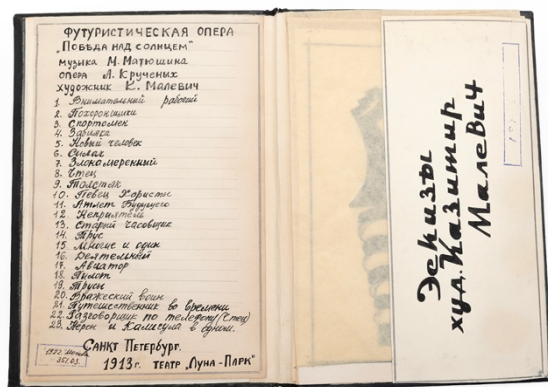 ФУТУРИСТИЧЕСКАЯ ОПЕРА
„Победа над солнцем"
музыка М. Матюшина
опера Л. Крученых
художник К. Малевич
1. Внимательный рабочий
2. Похоронщики
3. Спортсмен
4. Забияка
5. Новый человек
6. Силач
7. Злонамеренный
8. Чтец
9. Толстяк
10. Певец Хористы
11. Атлет Будущего
12. Неприятель
13. Старый часовщик
14. Трус
15. Многие и один
16. Деятельный
17. Авиатор
18. Пилот
19. Трусы
20. Вражеский воин
21. Путешественник во времени
22. Разговорщик по телефону (чтец)
23. Нерон и Калигула в одном.
САНКТ Петербург.
1913 г. ТЕАТР „Луна-Парк"
Эскизы
худ. Казимир
Малевич